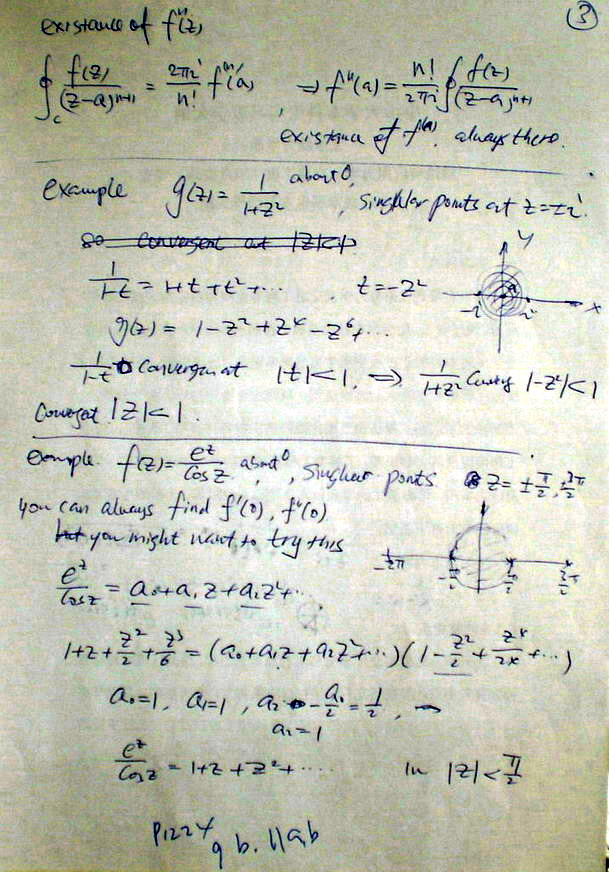 ③
existance of fⁿ(z)
∮_c f(z)/(z-a)ⁿ⁺¹ = 2πi/n! f⁽ⁿ⁾(a), ⇒ fⁿ(a) = n!/2πi ∮ f(z)/(z-a)ⁿ⁺¹
existance of f⁽ⁿ⁾, always there.
example g(z) = 1/(1+z²) about 0, singular points at z=±i
so convergent at |z|<1
1/(1-t) = 1+t+t²+... t=-z²
y
x
-i i
g(z) = 1-z²+z⁴-z⁶+...
1/(1-t) convergen at |t|<1, ⇒ 1/(1+z²) |-z²|<1
|z|<1
example f(z) = e^z/cos z about 0, singular points z=±π/2, 3π/2
you can always find f'(0), f''(0)
but you might want to try this
-π/2 π/2 3π/2
e^z/cos z = a₀+a₁z+a₂z²+...
1+z+z²/2+z³/6 = (a₀+a₁z+a₂z²+...)(1-z²/2+z⁴/24+...)
a₀=1, a₁=1, a₂-a₀/2=1/2, ⇒
a₂=1
e^z/cos z = 1+z+z²+.... in |z|<π/2
P122 4
9 b. 11 a,b